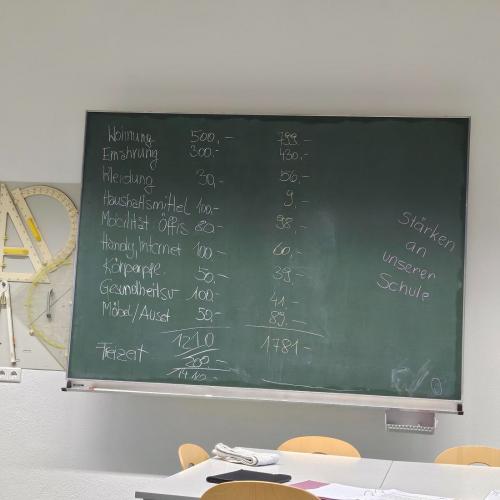 Wohnung 500,- 799.-
Ernährung 300.- 430.-
Kleidung 30,- 56.-
Haushaltsmittel 100.- 9.-
Mobilität Öffis 80- 98.-
Handy, Internet 100- 60.-
Körperpfle. 50,- 39.-
Gesundheitsv 100- 41.-
Möbel/Ausst 50.- 89.-
1210 1781.-
Freizeit 200.-
1410.-
Stärken
an
unserer
Schule